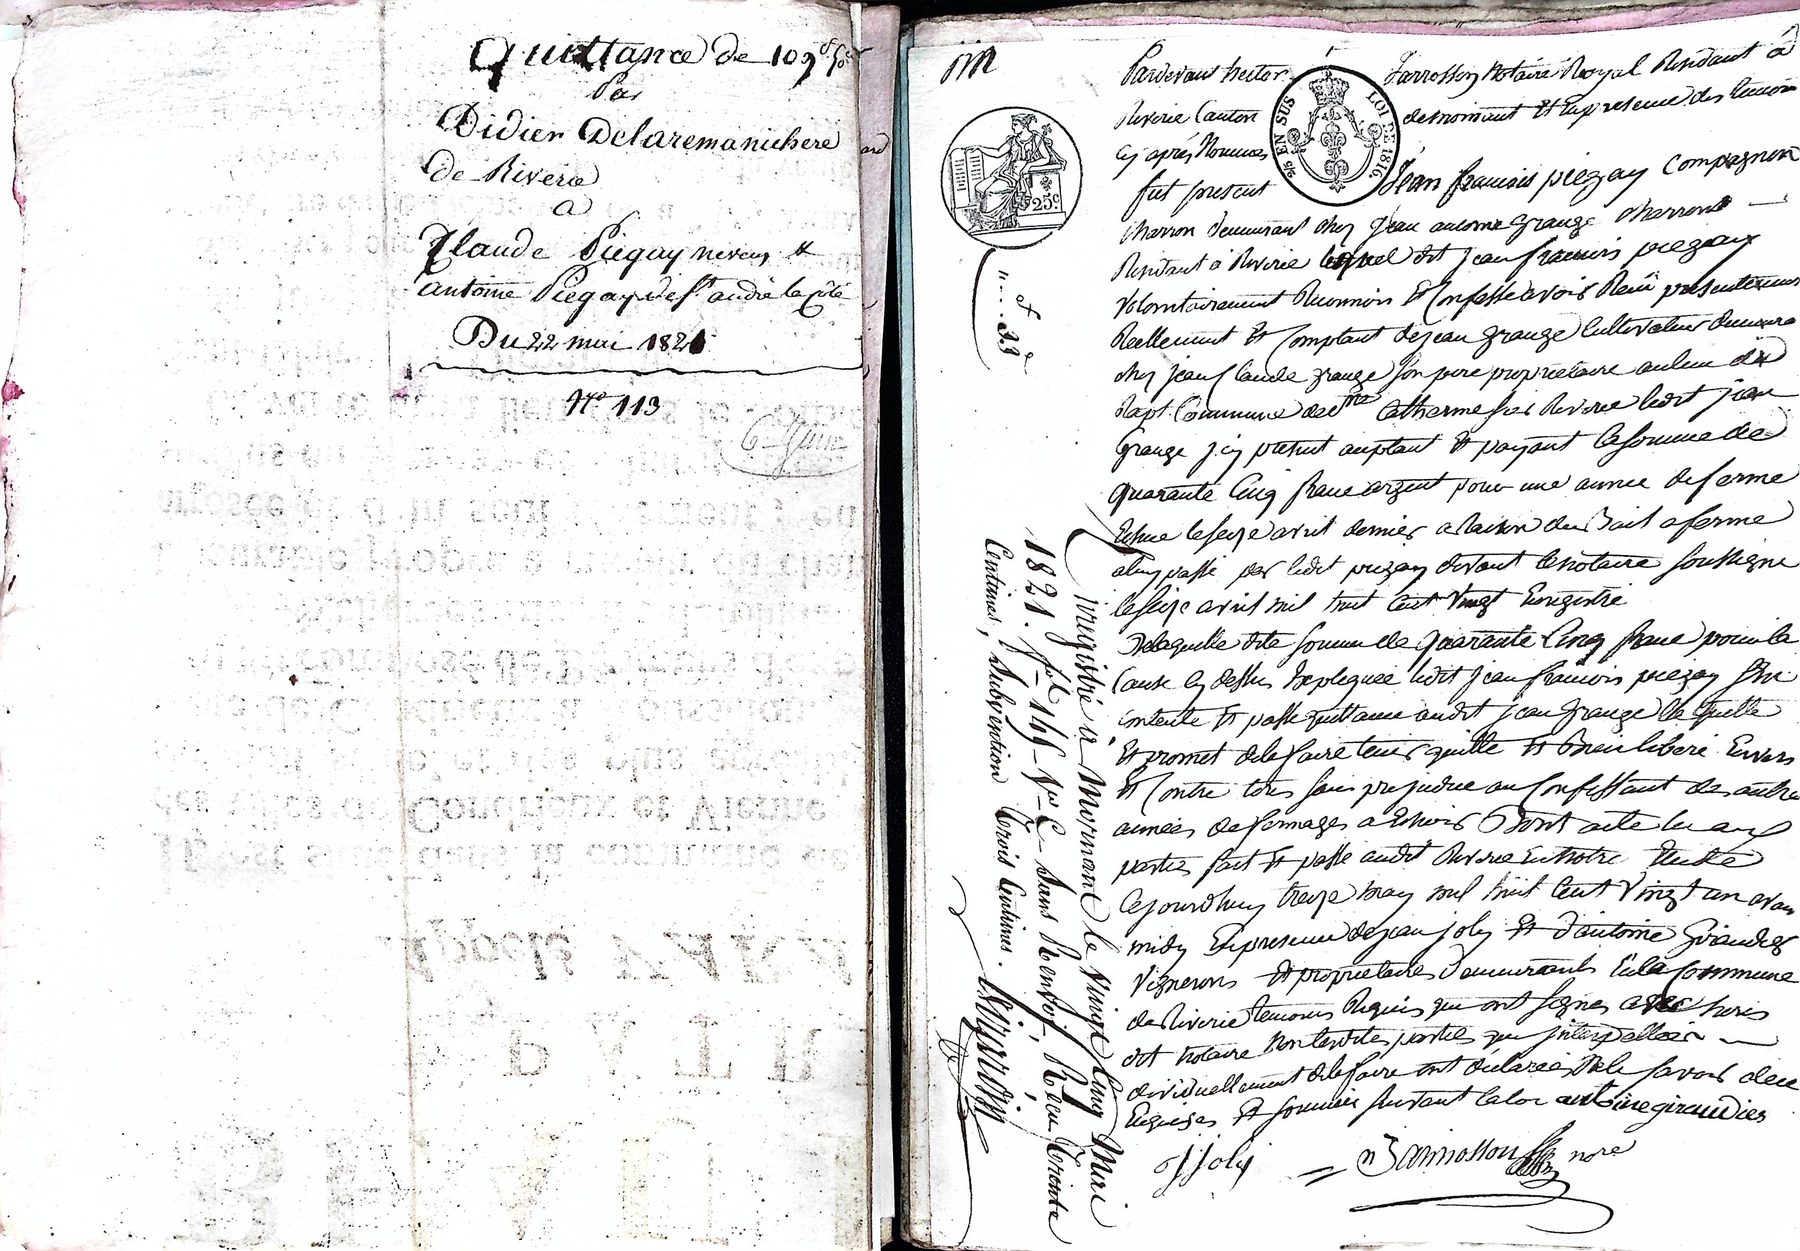 Quittance de 109f 50c
Par
Didier Delaremanichere
de Riverie
a
Claude Piegay neveux &
antoine Piegay de St andré la côte
Du 22 mai 1821
N° 113
Pardevant hector Jarrosson Notaire Royal Résidant à
Riverie Canton de mornant Et En présence des témoins
cy après Nommés
fut présent Jean françois piegay compagnon
charron demeurant chez Jean antoine Grange charron
Résidant à Riverie lequel dit jean françois piegay
volontairement Reconnois Et Confesse avoir Reçu présentement
Réellement Et Comptant de jean grange Cultivateur demeurant
chez jean Claude grange son père propriétaire au lieu du
Rapt Commune de Ste Catherine sur Riverie ledit jean
Grange icy présent acceptant Et payant la somme de
quarante Cinq franc argent pour une année de ferme
Echue le seize avril dernier a Raison du Bail a ferme
a luy passé par ledit piegay devant le notaire soussigné
le seize avril mil huit Cent Vingt Enregistré
De laquelle dite somme de quarante Cinq franc pour la
Cause cy dessus Expliquée ledit jean françois piegay s'en
contente Et passe quittance audit jean grange le quitte
Et promet de le faire tenir quitte Et Bien libéré Envers
Et Contre tous sans préjudice au Confessant des autres
années de fermages a Echoir Dont acte lu aux
parties fait Et passé audit Riverie En notre Etude
Cejourdhuy treize may mil huit Cent Vingt un avant
midy En présence de jean joly Et d'antoine Giraudier
Vignerons Et propriétaires demeurants En la Commune
de Riverie témoins Requis qui ont signés avec nous
dit notaire non lesdites parties qui interpellées
individuellement de le faire ont déclarées Ne le savoir de ce
Enquises Et sommées suivant la loi antoine giraudier
J Joly
Jarrosson nore
LOI DE 1816
EN SUS
25c
Enregistré à Mornant le Vingt Cinq Mai
1821. fol 166 Vo C Sans Renvoi, Reçu trente
Centimes, Subvention trois Centimes.